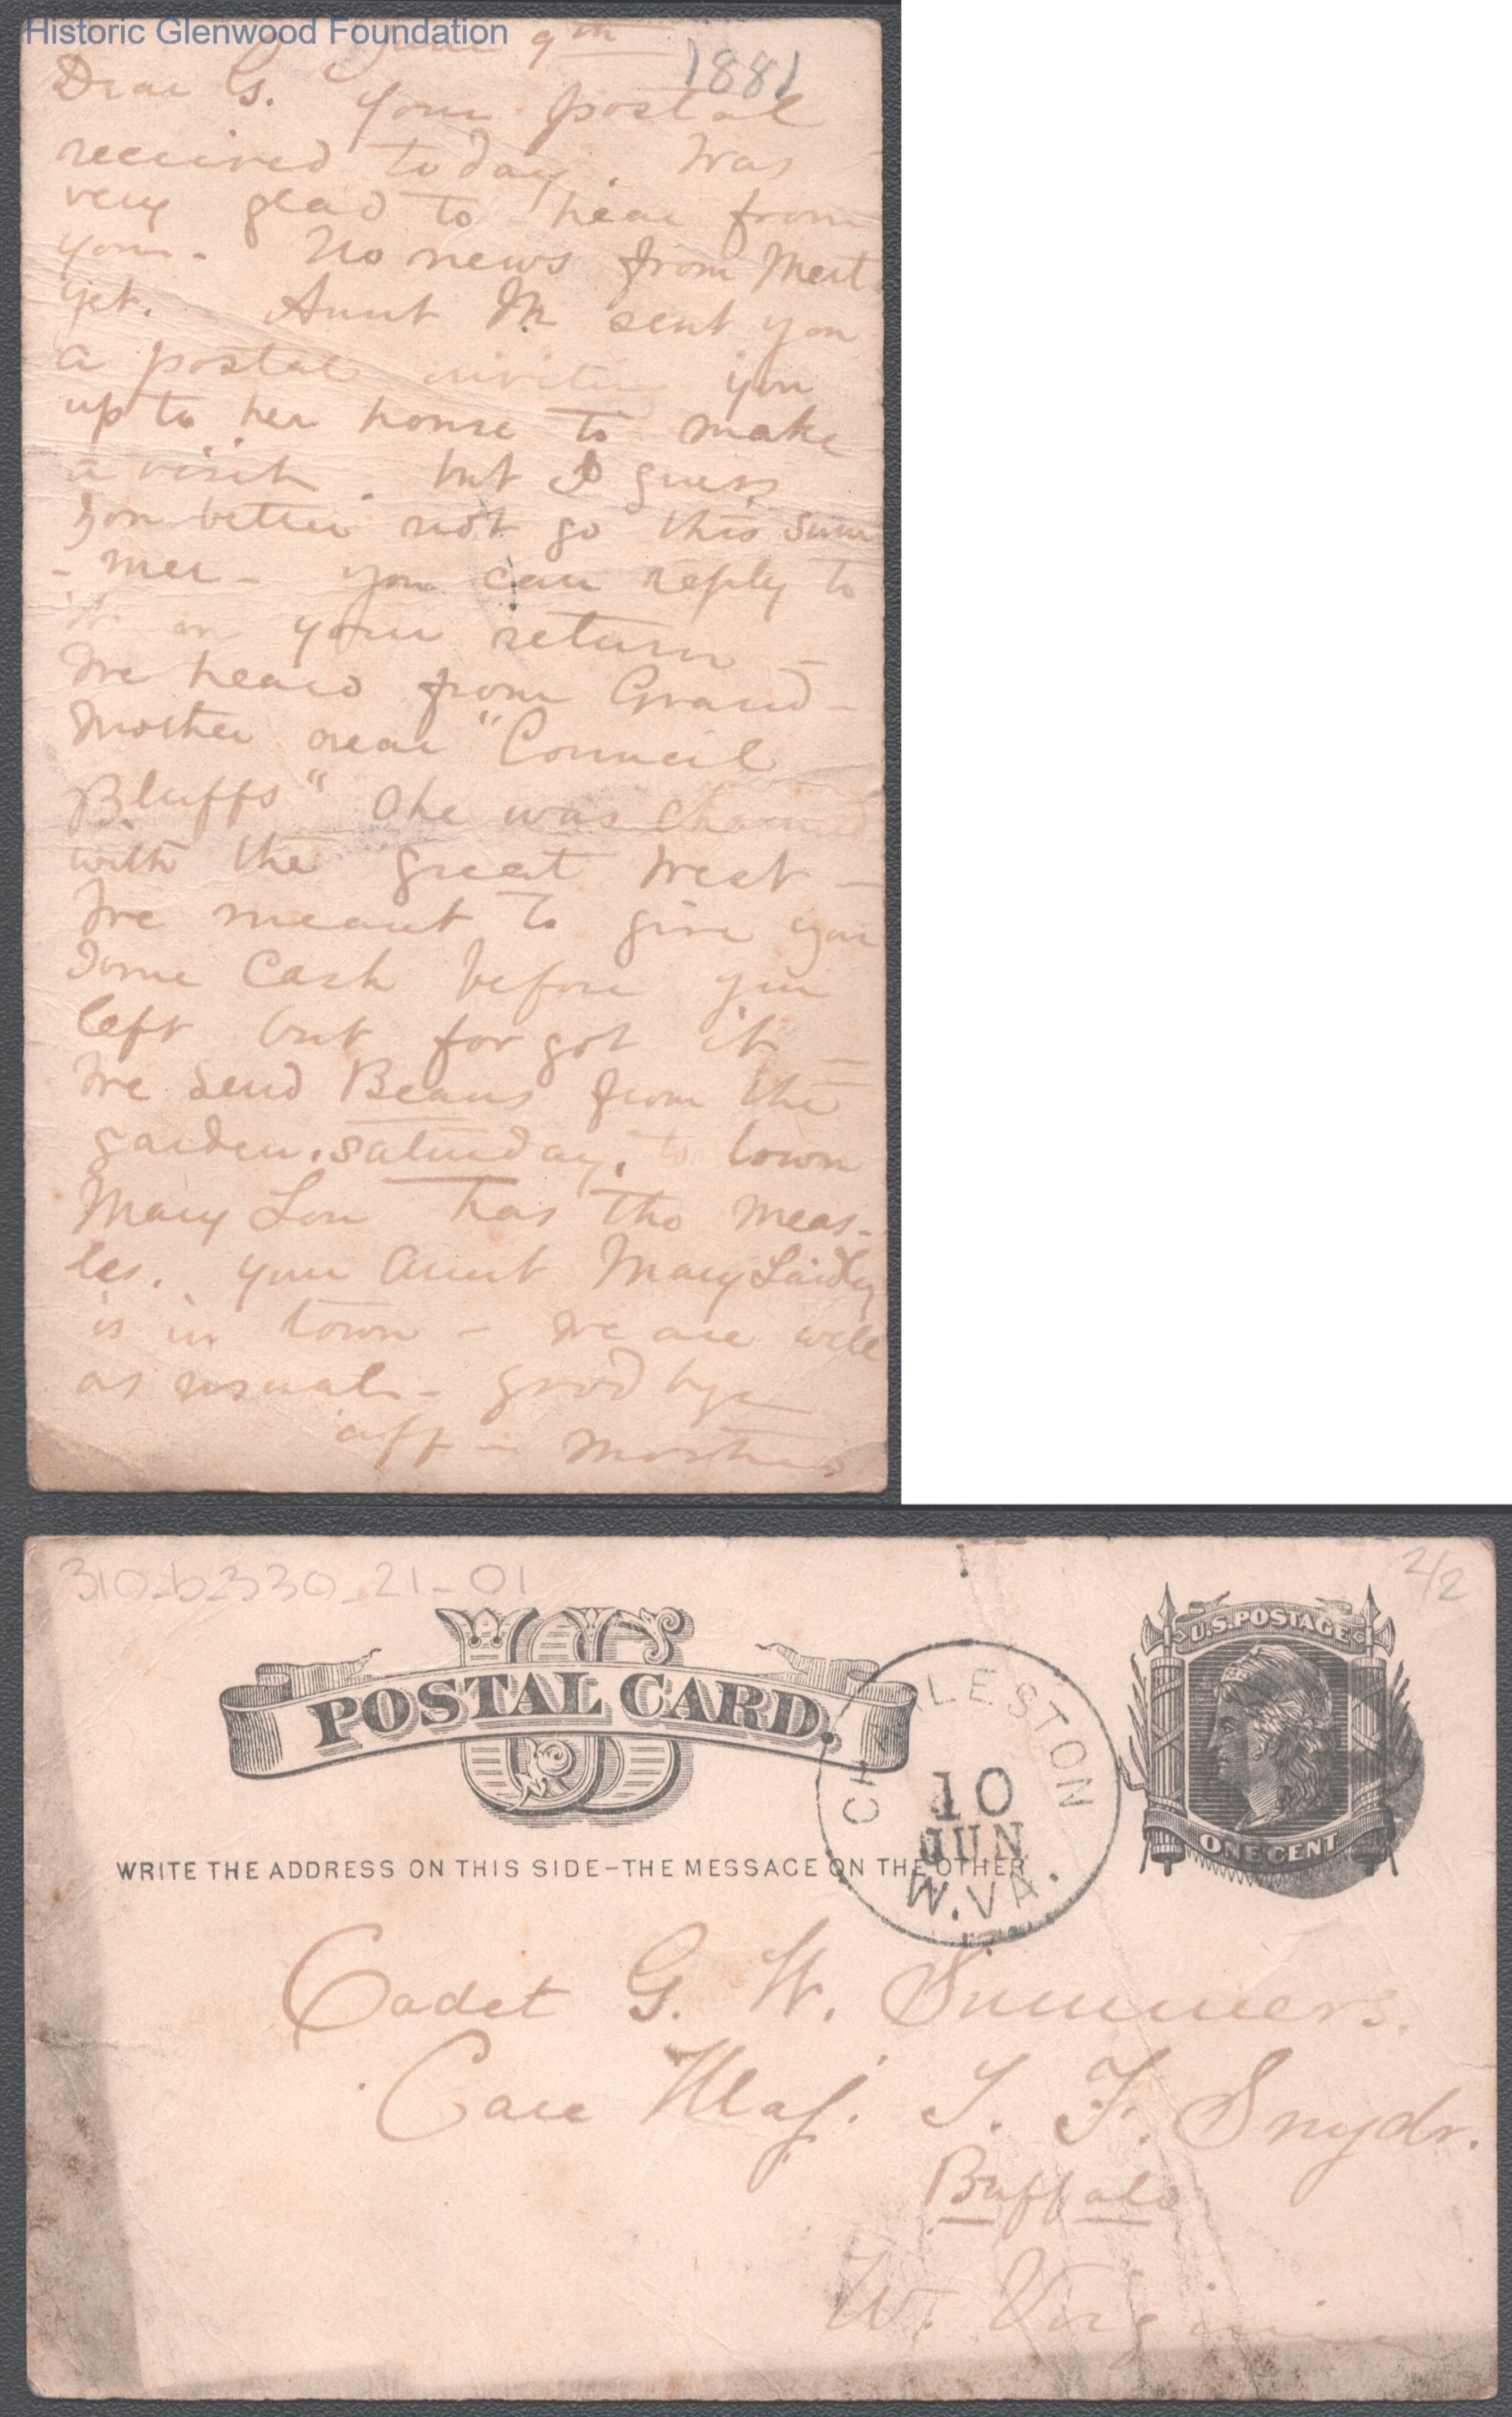 Historic Glenwood Foundation
June 9th
1881
Dear G. Your postal
received today. Was
very glad to hear from
you. No news from Mert
yet. Aunt M sent you
a postal inviting you
up to her house to make
a visit. but I guess
you better not go this sum
- mer - you can reply to
it on your return -
We heard from Grand-
mother near "Council
Bluffs" She was charmed
with the great West -
We meant to give you
some Cash before you
left but for got it -
We send Beans from the
garden. Saturday. to town
Mary Lou has the meas-
les. your Aunt Mary Laidley
is in town - We are well
as usual - good bye
aff - Mother
310-b-330_21-01
2/2
US
POSTAL CARD.
CHARLESTON
10
JUN
W.VA.
U.S. POSTAGE
ONE CENT
WRITE THE ADDRESS ON THIS SIDE-THE MESSAGE ON THE OTHER
Cadet G. W. Summers.
Care Maj. T. F. Snydr.
Buffalo
W. Virginia